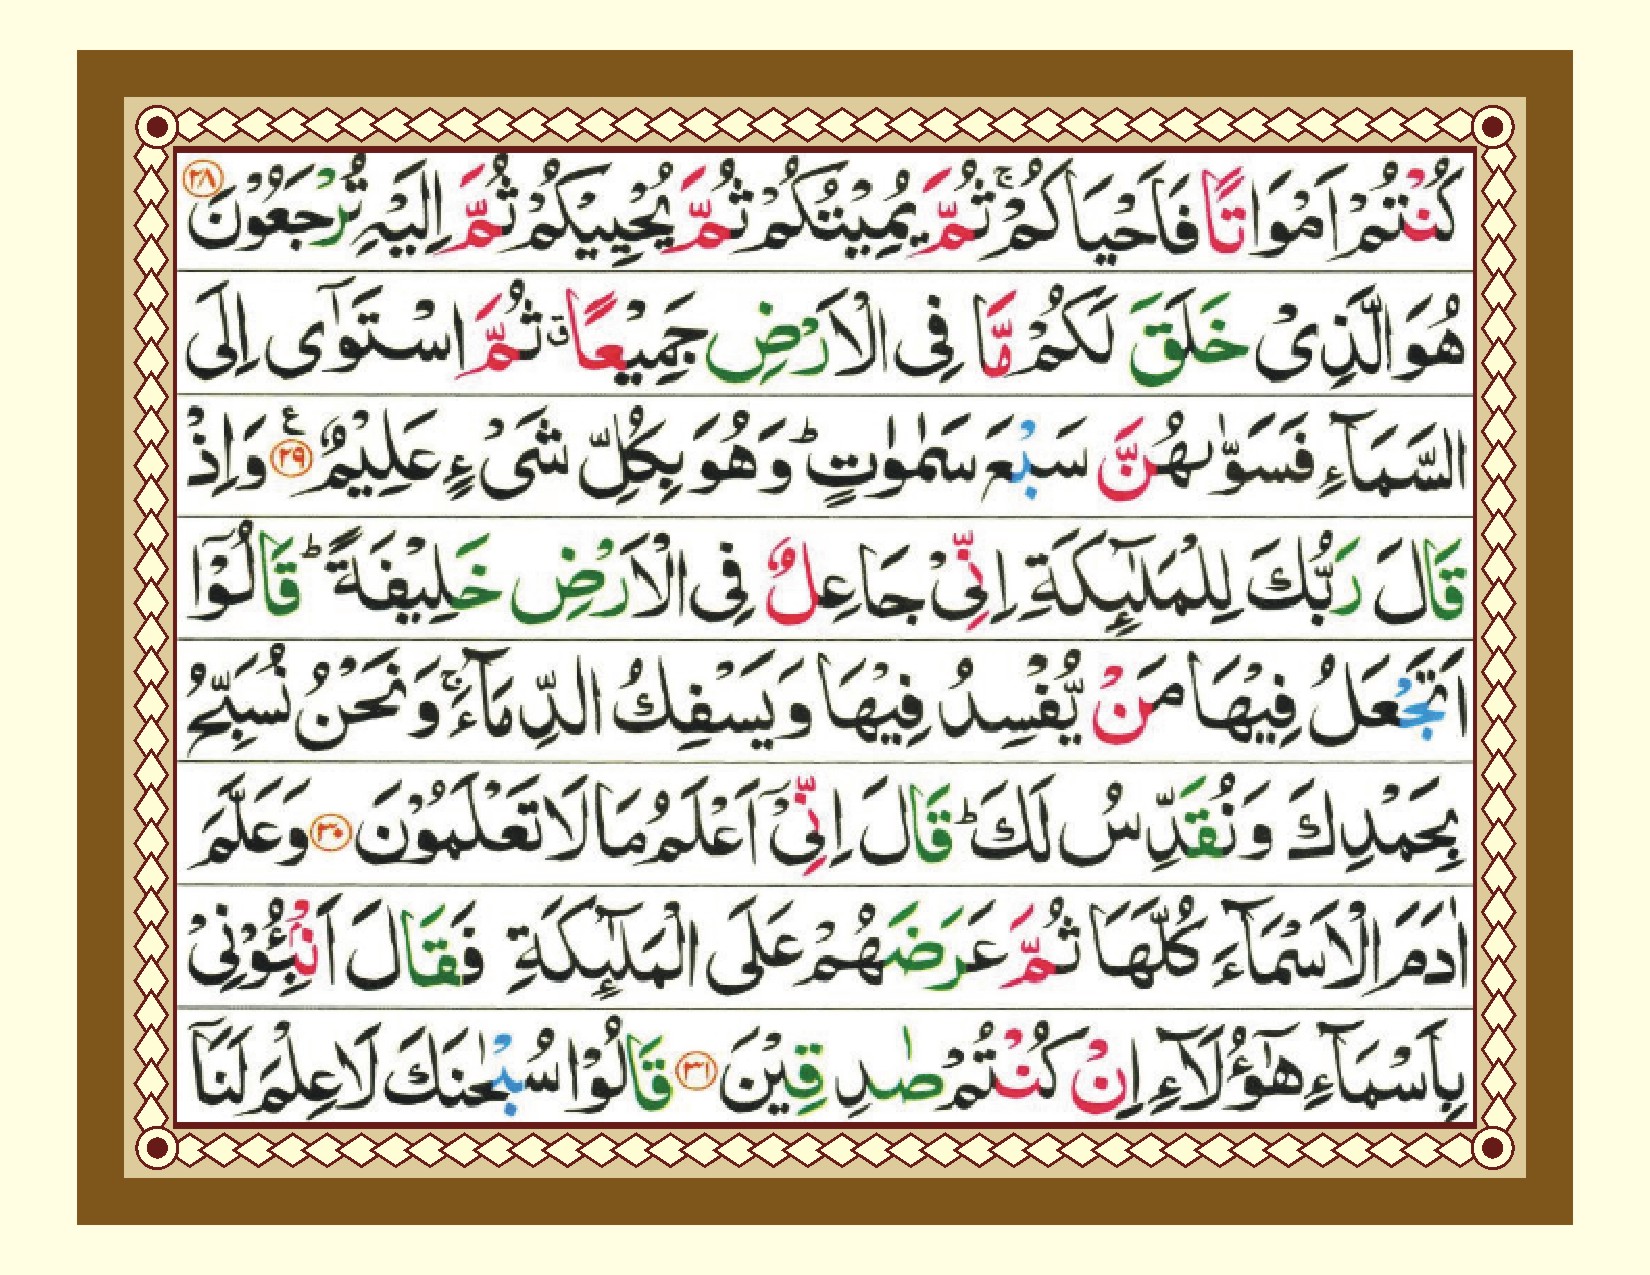 كُنْتُمْ اَمْوَاتًا فَاَحْيَاكُمْ ۚ ثُمَّ يُمِيْتُكُمْ ثُمَّ يُحْيِيْكُمْ ثُمَّ اِلَيْهِ تُرْجَعُوْنَ ﴿۲۸﴾
هُوَ الَّذِىْ خَلَقَ لَكُمْ مَّا فِى الْاَرْضِ جَمِيْعًا ۗ ثُمَّ اسْتَوٰٓى اِلَى
السَّمَآءِ فَسَوّٰىهُنَّ سَبْعَ سَمٰوٰتٍ ؕ وَهُوَ بِكُلِّ شَىْءٍ عَلِيْمٌ ﴿۲۹﴾ ع وَاِذْ
قَالَ رَبُّكَ لِلْمَلٰٓئِكَةِ اِنِّىْ جَاعِلٌ فِى الْاَرْضِ خَلِيْفَةً ؕ قَالُوْٓا
اَتَجْعَلُ فِيْهَا مَنْ يُّفْسِدُ فِيْهَا وَيَسْفِكُ الدِّمَآءَ ۚ وَنَحْنُ نُسَبِّحُ
بِحَمْدِكَ وَنُقَدِّسُ لَكَ ؕ قَالَ اِنِّىْٓ اَعْلَمُ مَا لَا تَعْلَمُوْنَ ﴿۳۰﴾ وَعَلَّمَ
اٰدَمَ الْاَسْمَآءَ كُلَّهَا ثُمَّ عَرَضَهُمْ عَلَى الْمَلٰٓئِكَةِ فَقَالَ اَنْۢبِـُٔوْنِىْ
بِاَسْمَآءِ هٰٓؤُلَآءِ اِنْ كُنْتُمْ صٰدِقِيْنَ ﴿۳۱﴾ قَالُوْا سُبْحٰنَكَ لَا عِلْمَ لَنَآ